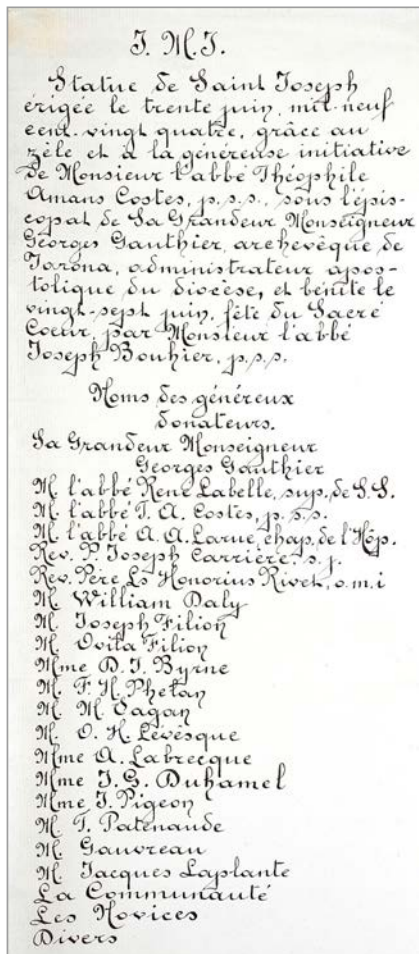 J. M. J.
Statue de Saint Joseph
érigée le trente juin, mil-neuf
cent-vingt quatre, grâce au
zèle et à la généreuse initiative
de Monsieur l'abbé Théophile
Amans Costes, p.s.s., sous l'épis-
copat de Sa Grandeur Monseigneur
Georges Gauthier, archevêque de
Tarona, administrateur apos-
tolique du diocèse, et bénite le
vingt-sept juin, fête du Sacré
Coeur, par Monsieur l'abbé
Joseph Bouhier, p.s.s.
Noms des généreux
donateurs.
Sa Grandeur Monseigneur
Georges Gauthier
M. l'abbé René Labelle, sup. de S.S.
M. l'abbé T. A. Costes, p.s.s.
M. l'abbé A. A. Larue, chap. de l'Hôp.
Rev. P. Joseph Carrière, s.j.
Rev. Père Ls Honorius Rivet, o.m.i
M. William Daly
M. Joseph Filion
M. Ovila Filion
Mme D. J. Byrne
M. F. H. Phelan
M. M. Vagan
M. O. H. Lévêsque
Mme A. Labrecque
Mme J. G. Duhamel
Mme J. Pigeon
M. T. Patenaude
M. Gauvreau
M. Jacques Laplante
La Communauté
Les Novices
Divers